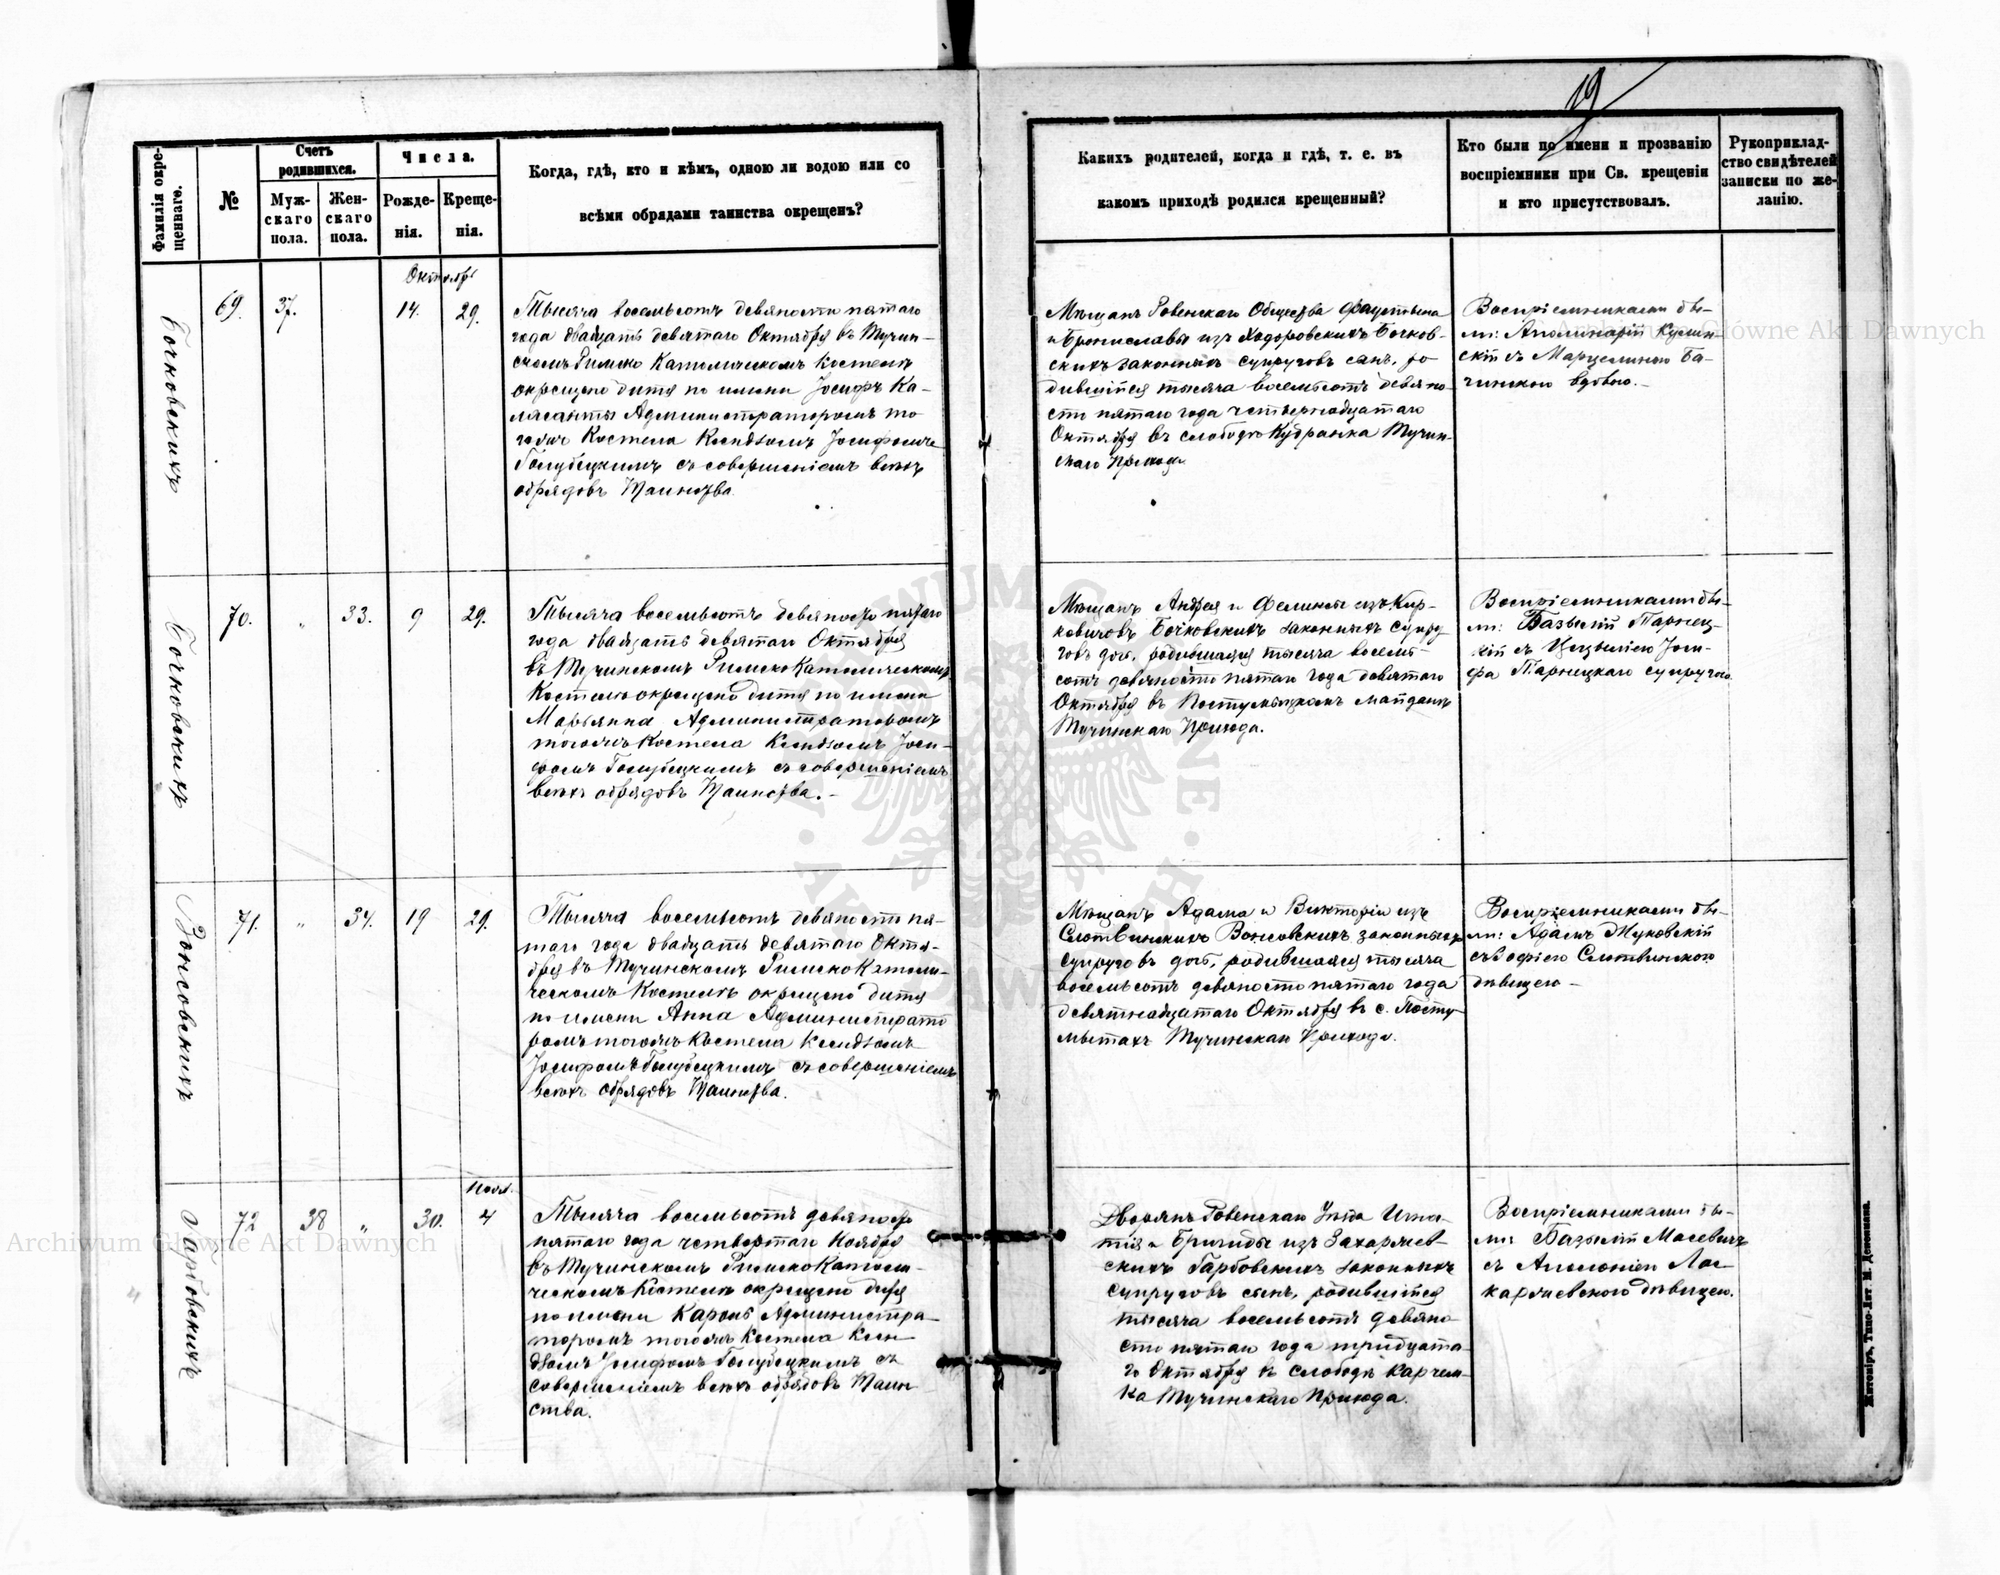 19
Фамилія окре-
щеннаго.
№
Счетъ
родившихся.
Муж-
скаго
пола.
Жен-
скаго
пола.
Числа.
Рожде-
нія.
Креще-
нія.
Когда, гдѣ, кто и кѣмъ, одною ли водою или со
всѣми обрядами таинства окрещенъ?
Какихъ родителей, когда и гдѣ, т. е. въ
какомъ приходѣ родился крещенный?
Кто были по имени и прозванію
воспріемники при Св. крещеніи
и кто присутствовалъ.
Рукоприклад-
ство свидѣтелей
записки по же-
ланію.
Бочковскихъ
69.
37.
Октябрь
14.
29.
Тысяча восемьсотъ девяносто пятаго
года двадцать девятаго Октября въ Тучин-
скомъ Римско Католическомъ Костелѣ
окрещено дитя по имени Іосифъ Ка-
лясанты Администраторомъ то
гожъ Костела Ксендзомъ Іосифомъ
Голубецкимъ съ совершеніемъ всѣхъ
обрядовъ Таинства.
Мѣщанъ Ровенскаго Общества Фаустына
и Брониславы изъ Ходоровскихъ Бочков-
скихъ законныхъ супруговъ сынъ, ро-
дившійся тысяча восемьсотъ девяно-
сто пятаго года четырнадцатаго
Октября въ слободѣ Кудранка Тучин-
скаго Прихода
Воспріемниками бы-
ли: Аполинарій Кулин-
скій съ Марцелиною Ба-
чинскою вдовою.-
Бочковскихъ
70.
„
33.
9
29.
Тысяча восемьсотъ девяносто пятаго
года двадцать девятаго Октября
въ Тучинскомъ Римско Католическомъ
Костелѣ окрещено дитя по имени
Марьянна Администраторомъ
тогожъ Костела Ксендзомъ Іоси-
фомъ Голубецкимъ съ совершеніемъ
всѣхъ обрядовъ Таинства.-
Мѣщанъ Андрея и Фелиціи изъ Кир-
ковичовъ Бочковскихъ законныхъ супру
говъ дочь, родившаяся тысяча восемь-
сотъ девяносто пятаго года девятаго
Октября въ Постумыцкомъ майданѣ
Тучинскаго Прихода.
Воспріемниками бы-
ли: Базылій Парнец-
кій съ Цецыліею Іоси-
фа Парнецкаго супругою.
Вонсовскихъ
71.
„
34.
19
29.
Тысяча восемьсотъ девяносто пя-
таго года двадцать девятаго Октя-
бря въ Тучинскомъ Римско Католи-
ческомъ Костелѣ окрещено дитя
по имени Анна Администрато
ромъ тогожъ Костела Ксендзомъ
Іосифомъ Голубецкимъ съ совершеніемъ
всѣхъ обрядовъ Таинства.
Мѣщанъ Адама и Викторіи изъ
Слотвинскихъ Вонсовскихъ законныхъ
супруговъ дочь, родившаяся тысяча
восемьсотъ девяносто пятаго года
девятнадцатаго Октября въ с. Посту
мытахъ Тучинскаго Прихода.
Воспріемниками бы-
ли: Адамъ Жуковскій
съ Зофіею Слотвинскою
дѣвицею -
Гарбовскихъ
72
38
„
30.
Нояб.
4
Тысяча восемьсотъ девяносто
пятаго года четвертаго Ноября
въ Тучинскомъ Римско Католи-
ческомъ Костелѣ окрещено дитя
по имени Кароль Администра-
торомъ тогожъ Костела Ксен-
дзомъ Іосифомъ Голубецкимъ съ
совершеніемъ всѣхъ обрядовъ Таин
ства.
Дворянъ Ровенскаго Уѣзда Игна-
тія и Бригиды изъ Захаржев-
скихъ Гарбовскихъ законныхъ
супруговъ сынъ, родившійся
тысяча восемьсотъ девяно-
сто пятаго года тридцата-
го Октября въ слободѣ Карчем-
ка Тучинскаго Прихода.
Воспріемниками бы-
ли: Базылій Масевичъ
съ Аполоніею
дѣвицею.
Житоміръ, Типо-Лит. М. Дененмана.
Archiwum Główne Akt Dawnych
Archiwum Główne Akt Dawnych